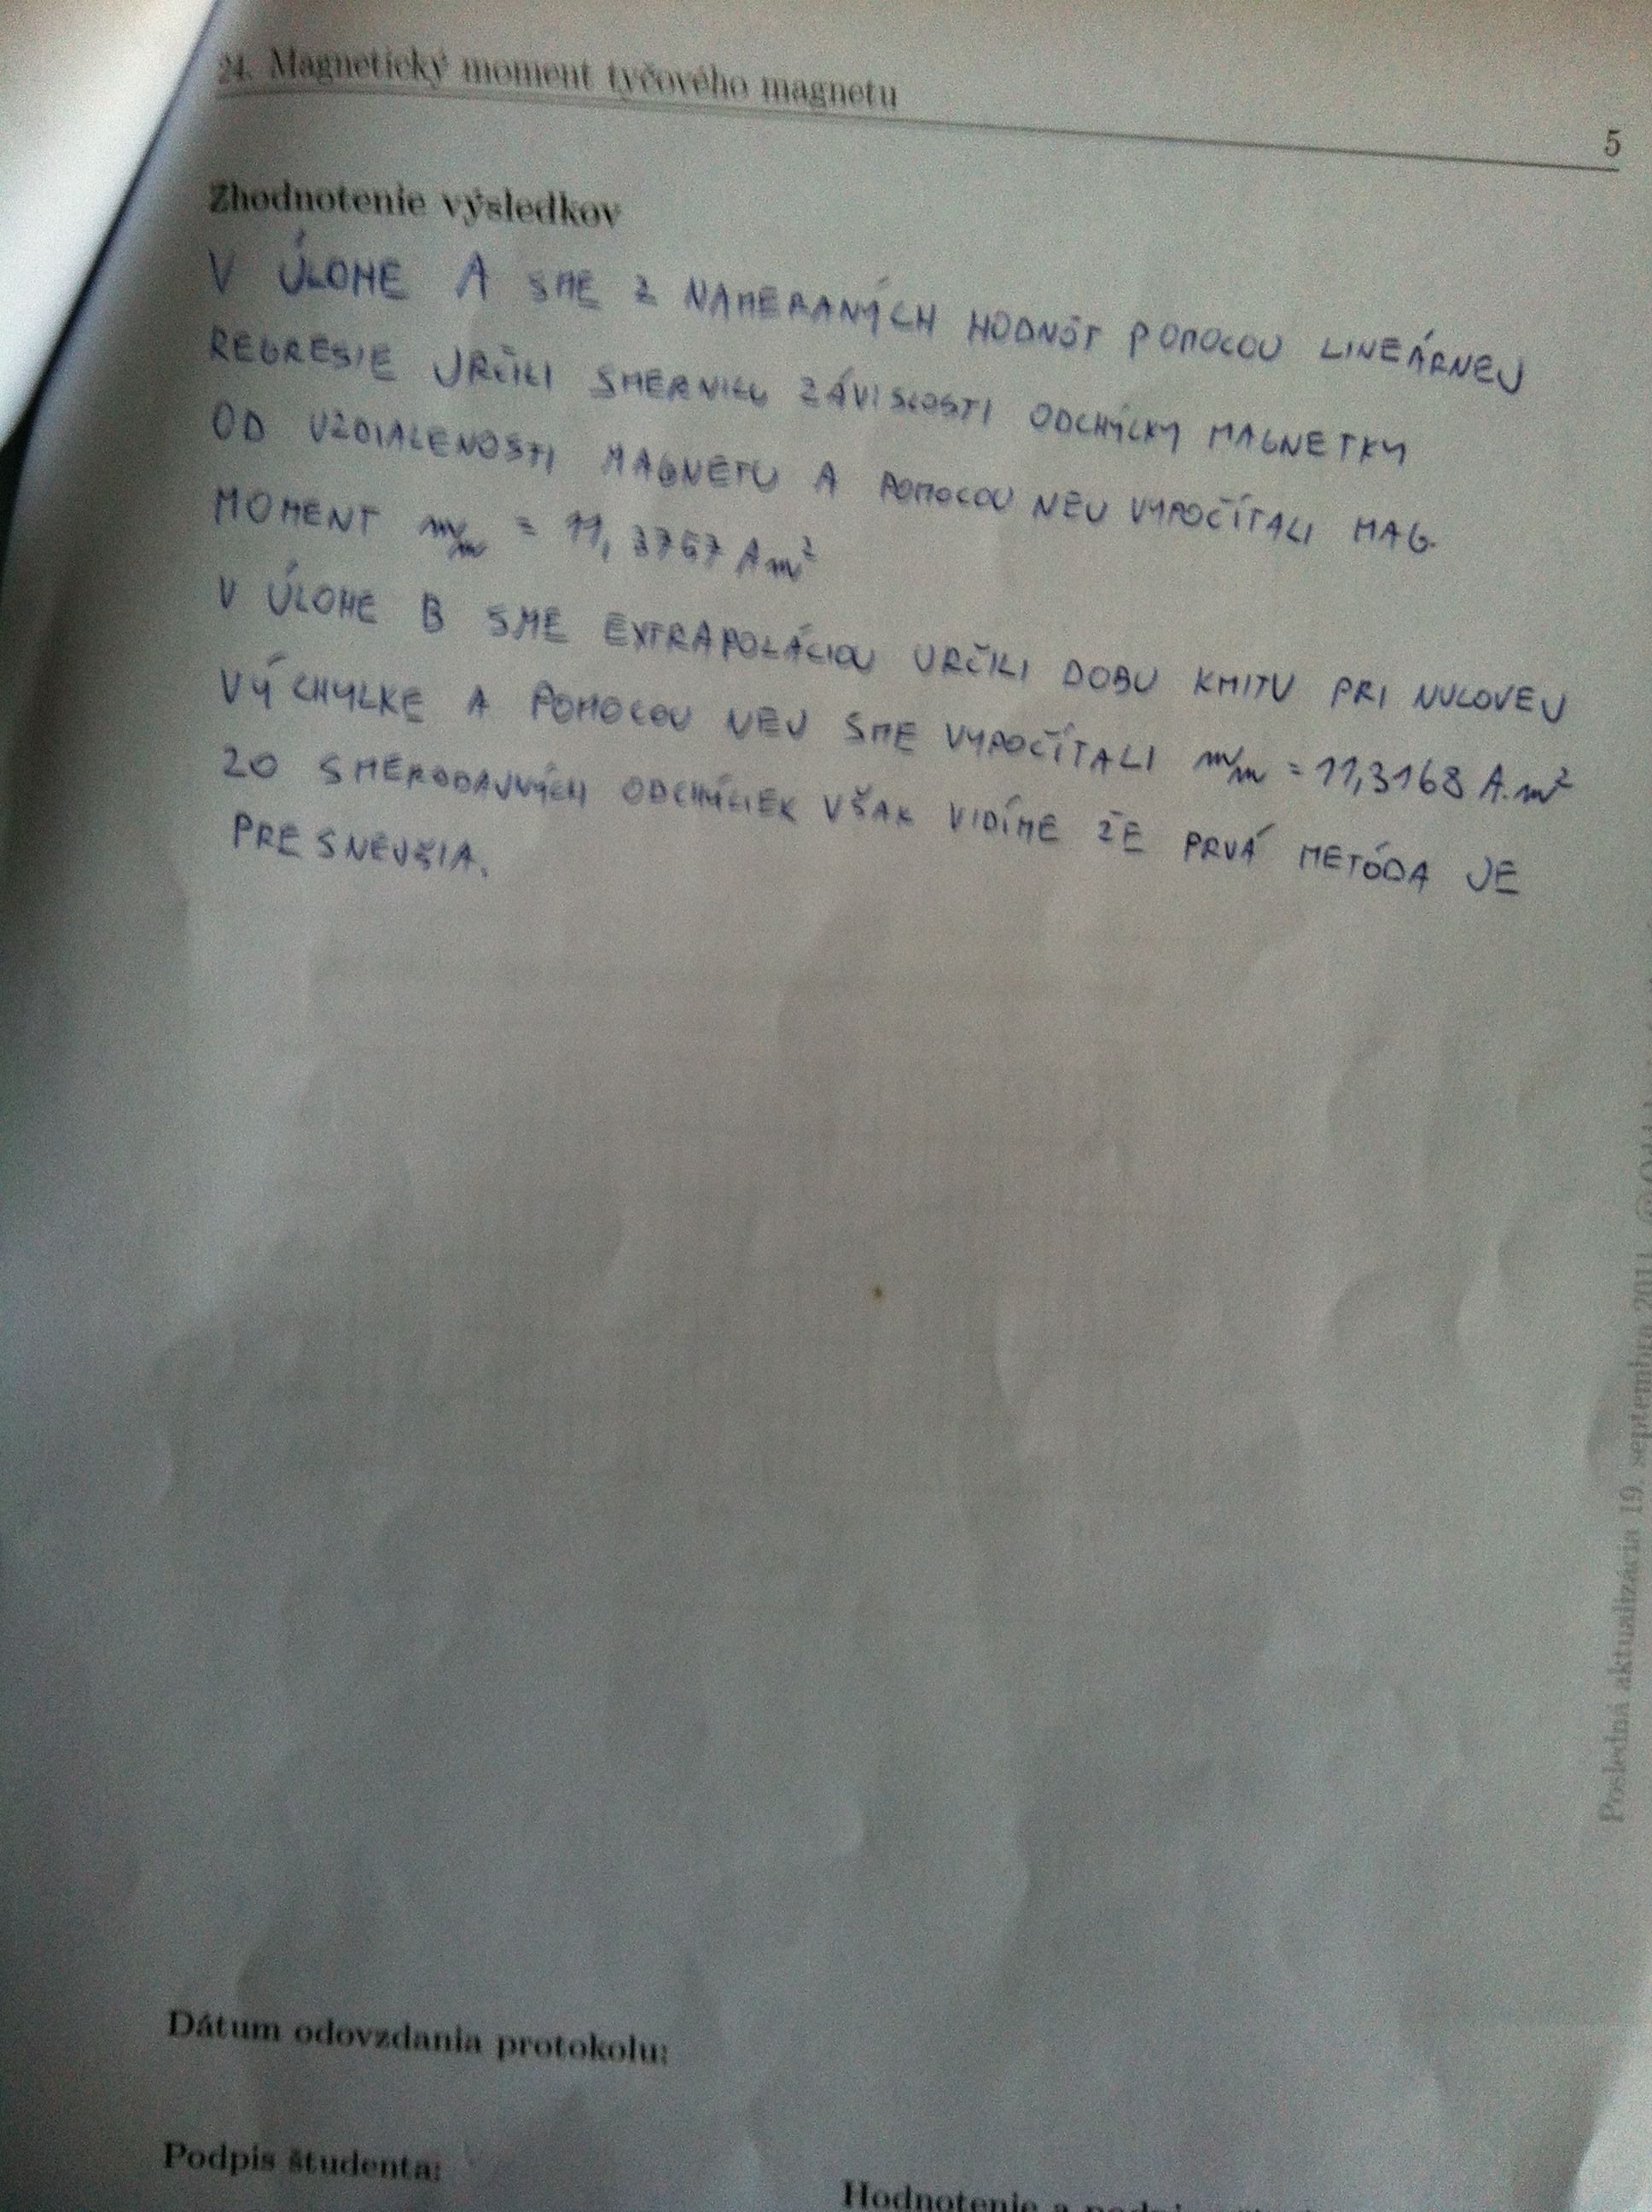 24. Magnetický moment tyčového magnetu
5
Zhodnotenie výsledkov
V ÚLOHE A SME Z NAMERANÝCH HODNÔT POMOCOU LINEÁRNEJ
REGRESIE URČILI SMERNICU ZÁVISLOSTI ODCHÝLKY MAGNETKY
OD VZDIALENOSTI MAGNETU A POMOCOU NEJ VYPOČÍTALI MAG.
MOMENT mm = 11,3767 Am²
V ÚLOHE B SME EXTRAPOLÁCIOU URČILI DOBU KMITU PRI NULOVEJ
VÝCHYLKE A POMOCOU NEJ SME VYPOČÍTALI mm = 11,3168 A.m²
ZO SMERODAJNÝCH ODCHÝLIEK VŠAK VIDÍME ŽE PRVÁ METÓDA JE
PRESNEJŠIA.
Posledná aktualizácia 19. septembra 2011
Dátum odovzdania protokolu:
Podpis študenta:
Hodnotenie a